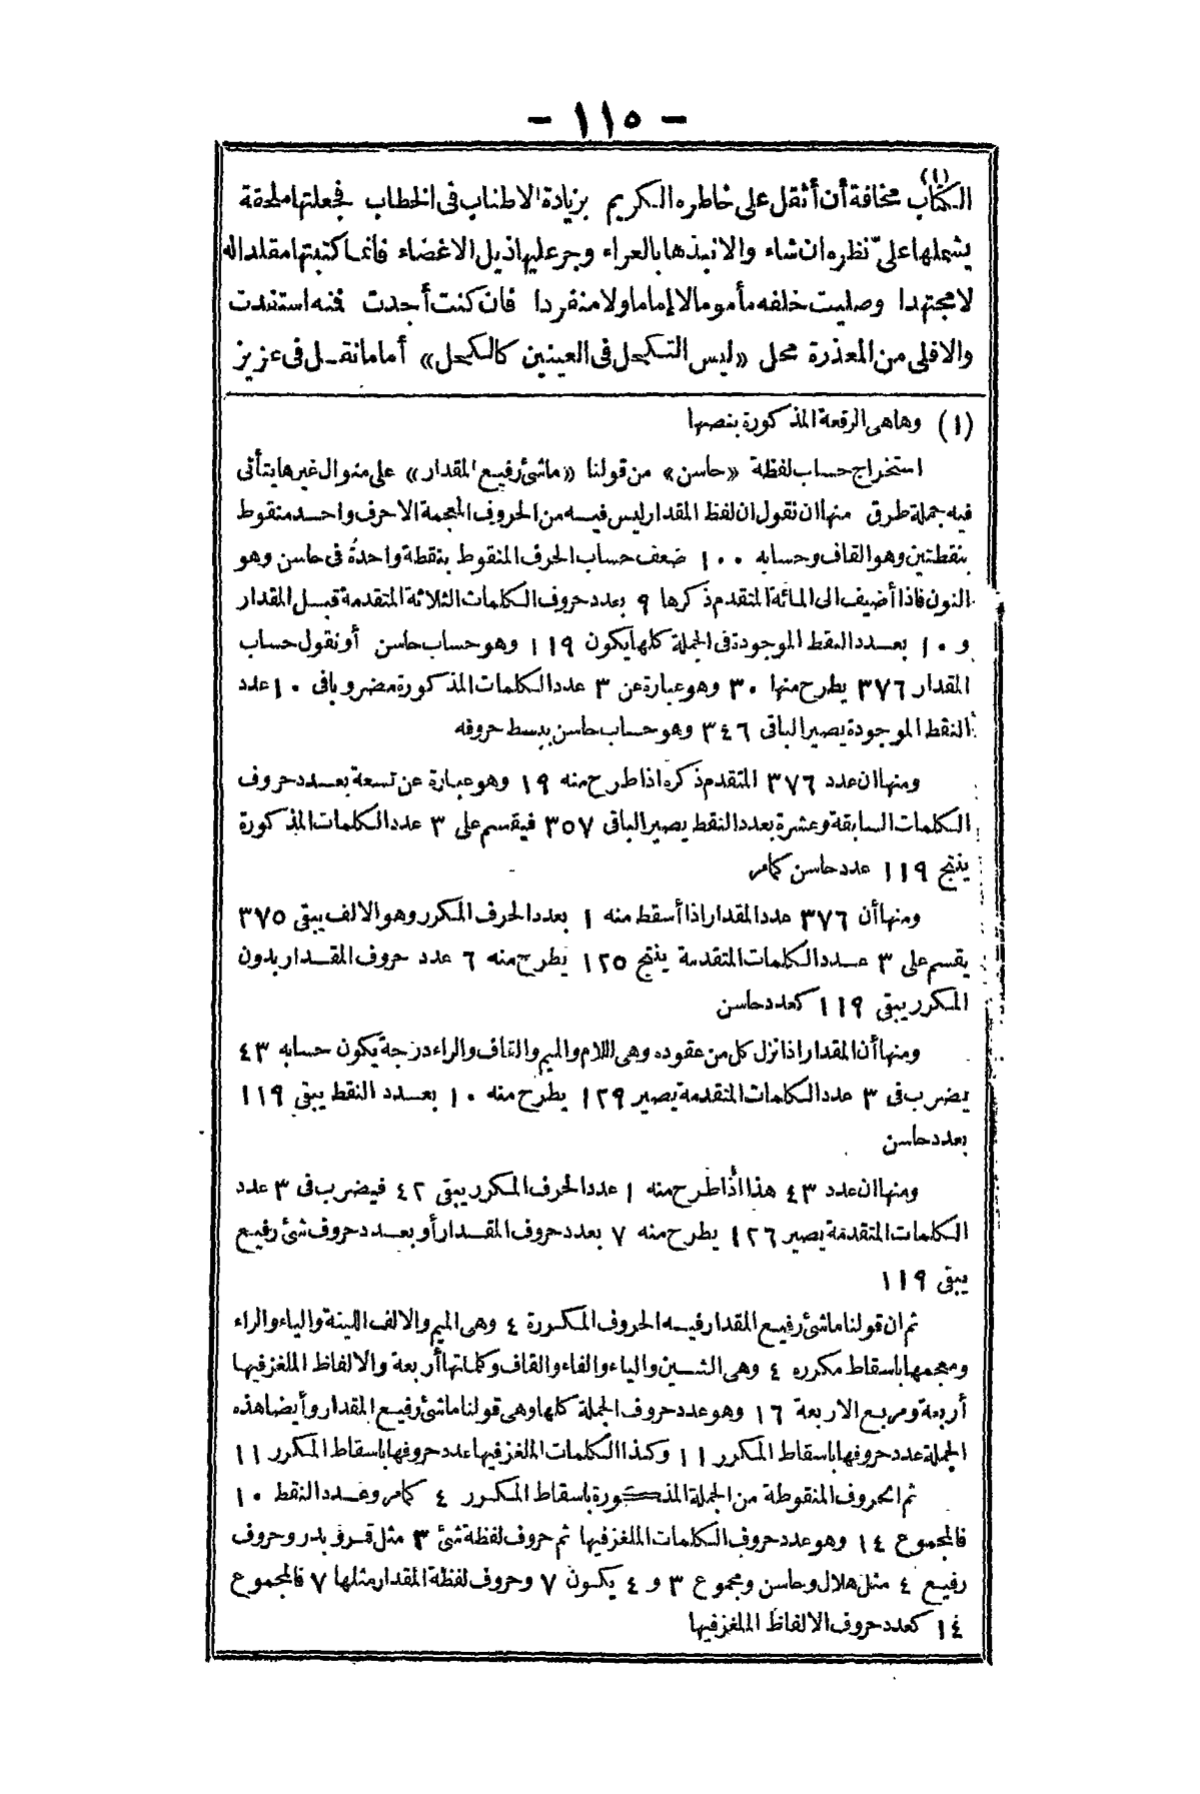 - ١١٥ -
الكتاب (١) مخافة أن أثقل على خاطره الكريم بزيادة الاطناب فى الخطاب فجعلتها ملحقة
يشملها علىّ نظره ان شاء والا نبذها بالعراء وجر عليها ذيل الاغضاء فانما كتبتها مقلدا له
لا مجتهدا وصليت خلفه مأموما لا إماما ولا منفردا فان كنت أجدت فمنه استفدت
والا فلى من المعذرة محل «ليس التكحل فى العينين كالكحل» أما ما نقل فى عزيز
(١) وها هى الرقعة المذكورة بنصها
استخراج حساب لفظة «حاسن» من قولنا «ماشئ رفيع المقدار» على منوال غيرها يتأتى
فيه جملة طرق منها ان نقول ان لفظ المقدار ليس فيه من الحروف المعجمة الا حرف واحد منقوط
بنقطتين وهو القاف وحسابه ١٠٠ ضعف حساب الحرف المنقوط بنقطة واحدة فى حاسن وهو
النون فاذا أضيف الى المائة المتقدم ذكرها ٩ بعدد حروف الكلمات الثلاثة المتقدمة قبل المقدار
و ١٠ بعدد النقط الموجودة فى الجملة كلها يكون ١١٩ وهو حساب حاسن أو نقول حساب
المقدار ٣٧٦ يطرح منها ٣٠ وهو عبارة عن ٣ عدد الكلمات المذكورة مضروبا فى ١٠ عدد
النقط الموجودة يصير الباقى ٣٤٦ وهو حساب حاسن ببسط حروفه
ومنها ان عدد ٣٧٦ المتقدم ذكره اذا طرح منه ١٩ وهو عبارة عن تسعة بعدد حروف
الكلمات السابقة وعشرة بعدد النقط يصير الباقى ٣٥٧ فيقسم على ٣ عدد الكلمات المذكورة
ينتج ١١٩ عدد حاسن كما مر
ومنها أن ٣٧٦ عدد المقدار اذا أسقط منه ١ بعدد الحرف المكرر وهو الالف يبقى ٣٧٥
يقسم على ٣ عدد الكلمات المتقدمة ينتج ١٢٥ يطرح منه ٦ عدد حروف المقدار بدون
المكرر يبقى ١١٩ كعدد حاسن
ومنها أن المقدار اذا نزل كل من عقوده وهى اللام والميم والقاف والراء درجة يكون حسابه ٤٣
يضرب فى ٣ عدد الكلمات المتقدمة يصير ١٢٩ يطرح منه ١٠ بعدد النقط يبقى ١١٩
بعدد حاسن
ومنها ان عدد ٤٣ هذا اذا طرح منه ١ عدد الحرف المكرر يبقى ٤٢ فيضرب فى ٣ عدد
الكلمات المتقدمة يصير ١٢٦ يطرح منه ٧ بعدد حروف المقدار أو بعدد حروف شئ رفيع
يبقى ١١٩
ثم ان قولنا ماشئ رفيع المقدار فيه الحروف المكررة ٤ وهى الميم والالف اللينة والياء والراء
ومعجمها باسقاط مكرره ٤ وهى الشين والياء والفاء والقاف وكلماتها أربعة والالفاظ الملغز فيها
أربعة ومربع الاربعة ١٦ وهو عدد حروف الجملة كلها وهى قولنا ماشئ رفيع المقدار وأيضا هذه
الجملة عدد حروفها باسقاط المكرر ١١ وكذا الكلمات الملغز فيها عدد حروفها باسقاط المكرر ١١
ثم الحروف المنقوطة من الجملة المذكورة باسقاط المكرر ٤ كما مر وعدد النقط ١٠
فالمجموع ١٤ وهو عدد حروف الكلمات الملغز فيها ثم حروف لفظة شئ ٣ مثل قمر و بدر وحروف
رفيع ٤ مثل هلال وحاسن ومجموع ٣ و ٤ يكون ٧ وحروف لفظة المقدار مثلها ٧ فالمجموع
١٤ كعدد حروف الالفاظ الملغز فيها